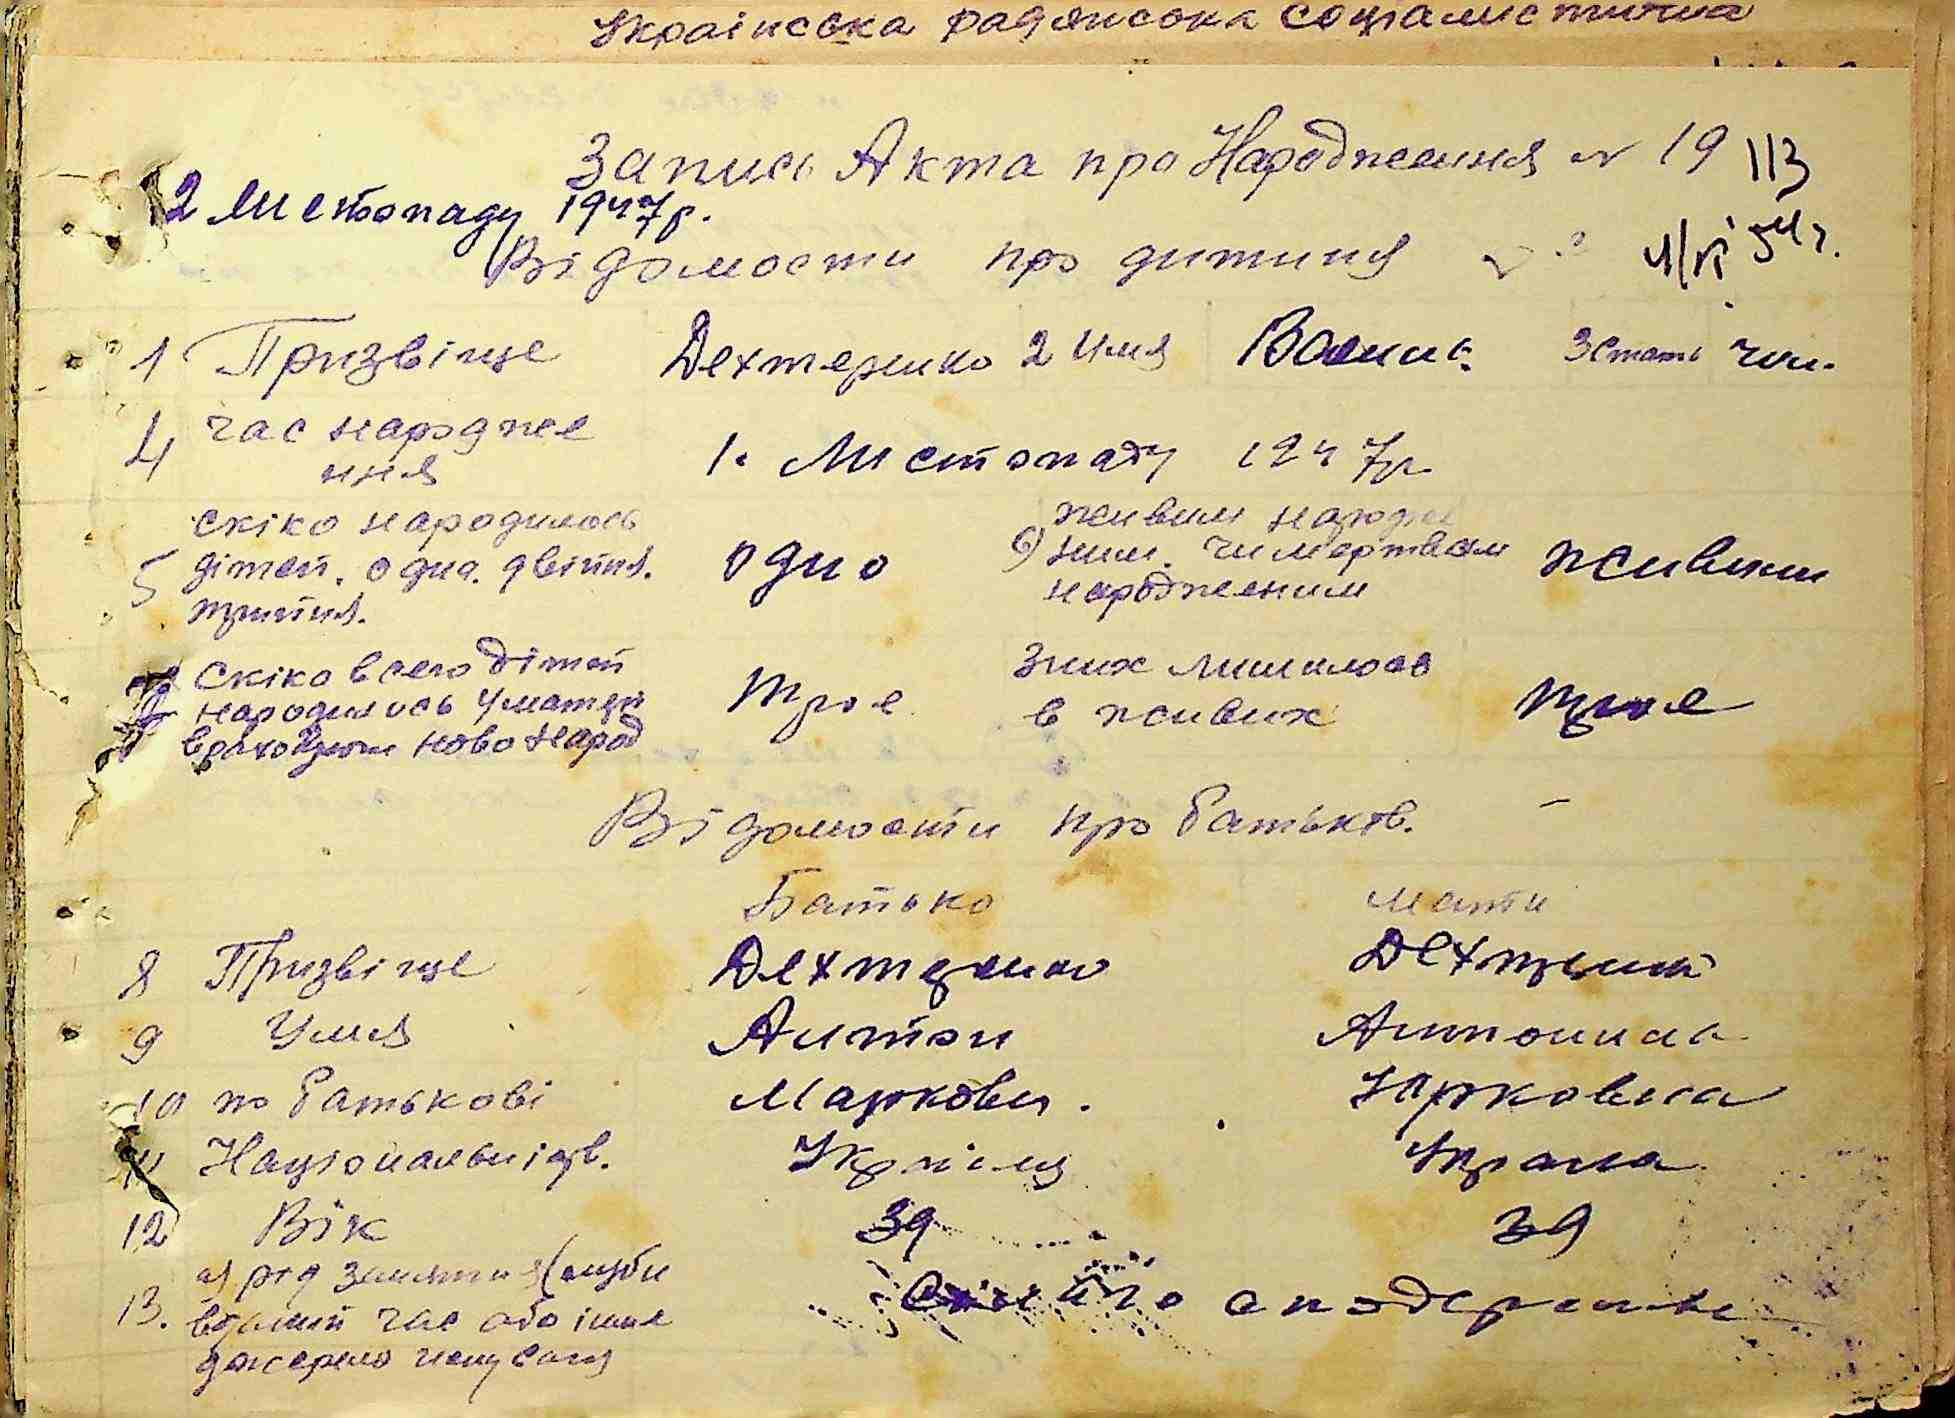 Українська радянсока соціалистична
Запись Акта про Народження № 19 113
2 Листопаду 1947р.
Відомости про дитиня
1 Призвіще Дехтеренко 2 Имя Василь 3 стать чол.
4 час народже
ння 1. Листопаду 1947р
5 скіко народилось
дітей. одна. двійня.
трийня. одно
6) живим народже
ним. чи мертвим
народженим живим
Скіко всего дітей
народилось у матери
враховуючи новонарод трое
Зних лишилось
в живих трое
Відомости про батьків.
Батько мати
8 Призвіще Дехтеренко Дехтеренко
9 Имя Антон Антонина
10 по батькові Маркович. Юрковна
11 Національність. Українец Украінка
12 Вік 39 39
13. а) род заняття (служби
в данний час або інше
джерело